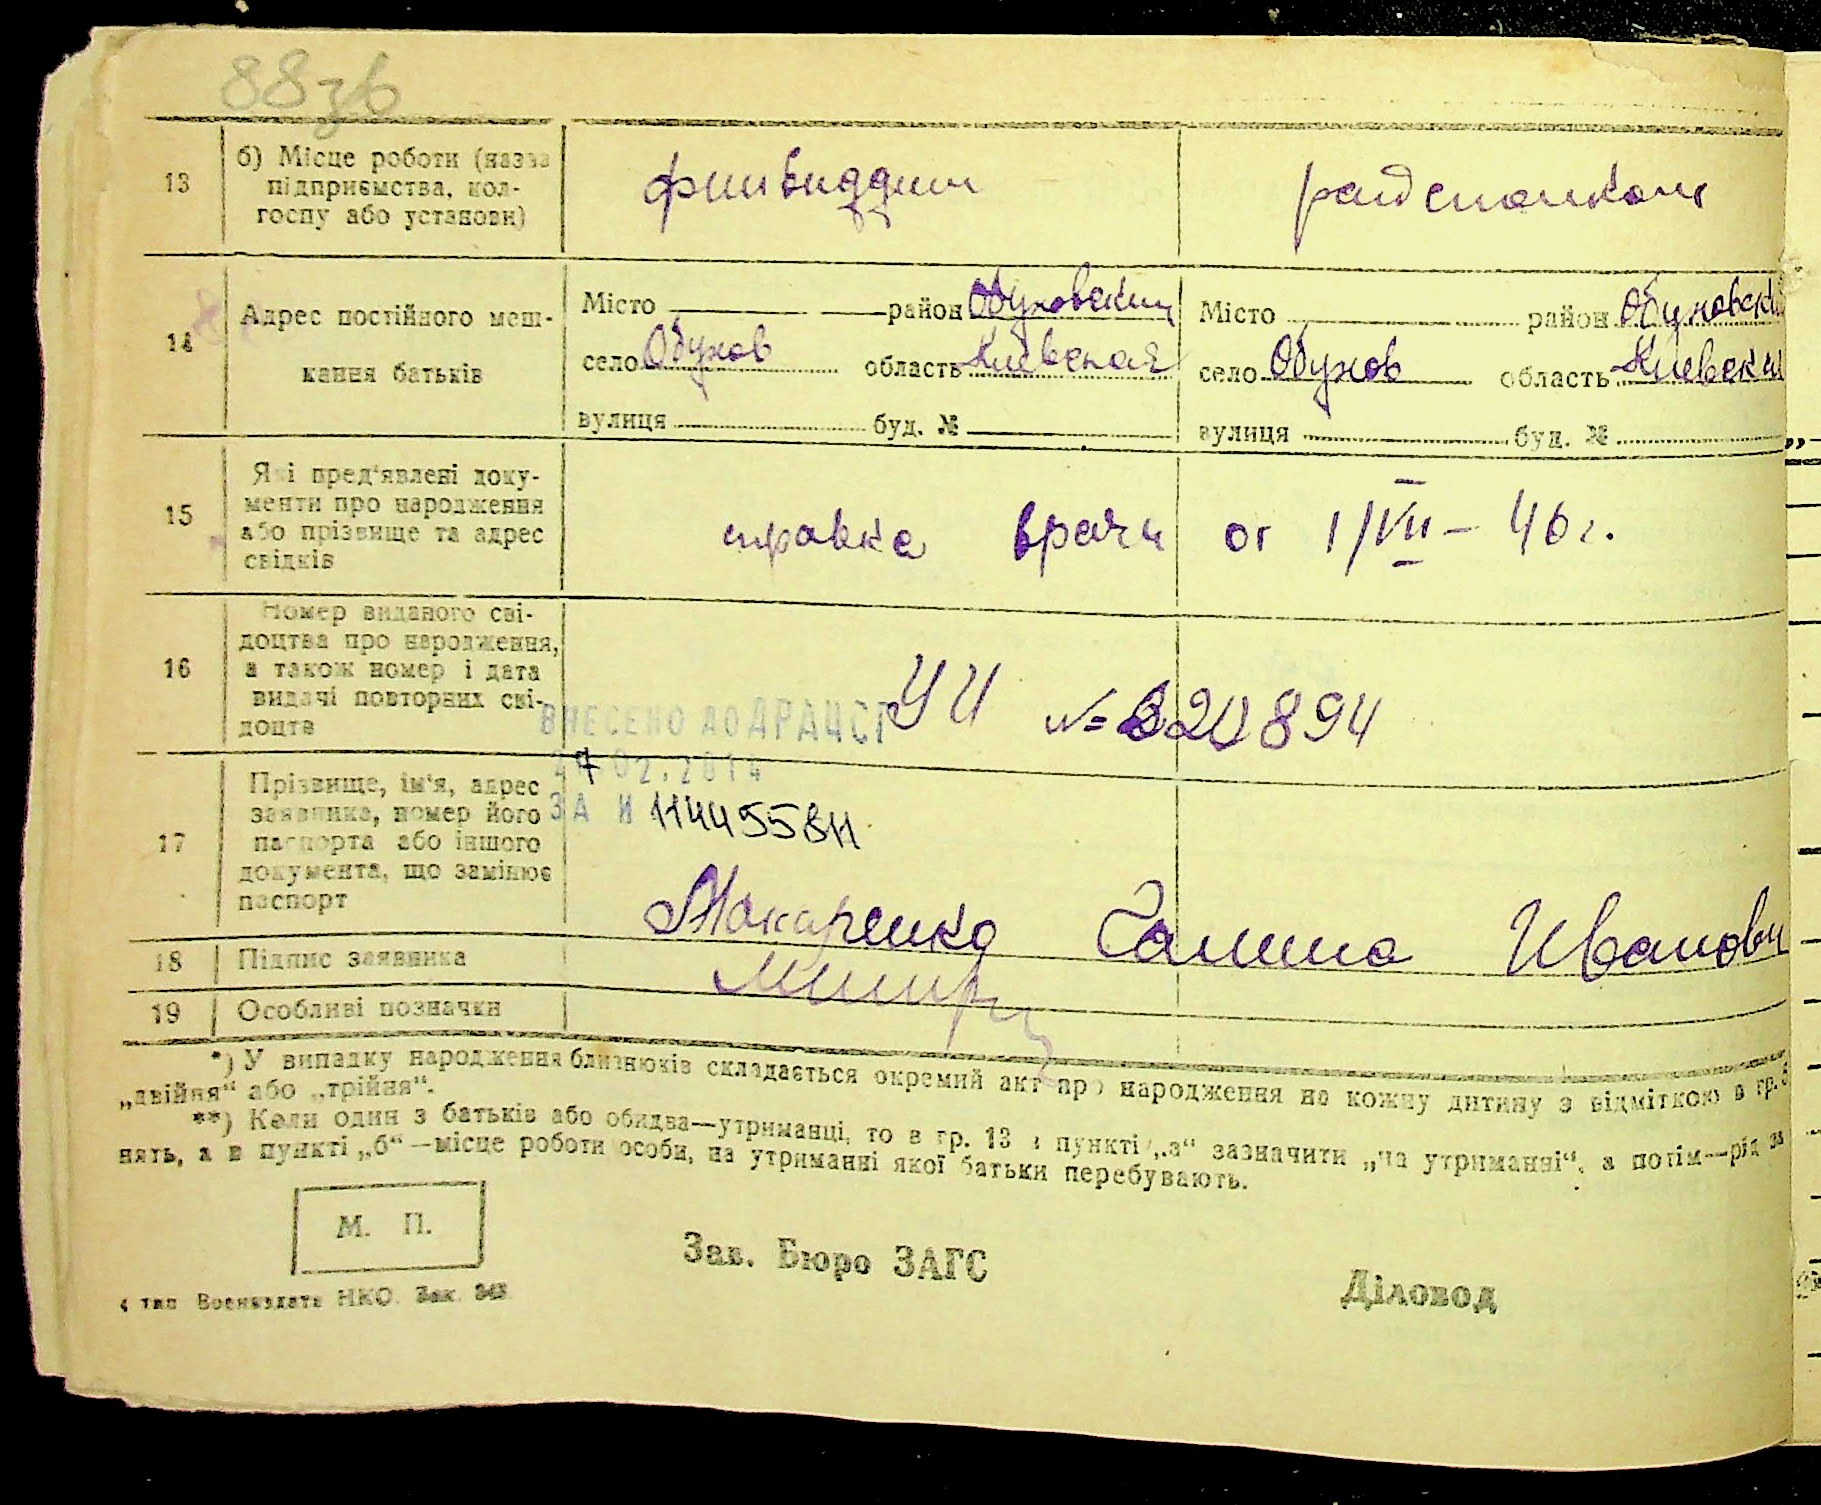 88зв
13
б) Місце роботи (назва
підприємства, кол-
госпу або установи)
райспомком
14
Адрес постійного меш-
кання батьків
Місто район Обуховский
село Обухов область Киевская
вулиця буд. №
Місто район Обуховски
село Обухов область Киевски
вулиця буд. №
15
Які пред'явлені доку-
менти про народження
або прізвище та адрес
свідків
справка врача от 1/VII – 46 г.
16
Номер виданого сві-
доцтва про народження,
а також номер і дата
видачі повторних сві-
доцтв
УИ № 820894
ВНЕСЕНО ДО ДРАЦСГ
02.2014
ЗА И
17
Прізвище, ім'я, адрес
заявника, номер його
паспорта або іншого
документа, що замінює
паспорт
Макаренко Галина Ивановн
18
Підпис заявника
19
Особливі позначки
*) У випадку народження близнюків складається окремий акт про народження на кожну дитину з відміткою в гр. 5
„двійня“ або „трійня“.
**) Коли один з батьків або обидва—утриманці, то в гр. 13 в пункті „а“ зазначити „на утриманні“, а потім—рід за
нять, а в пункті „б“—місце роботи особи, на утриманні якої батьки перебувають.
М. П.
Зав. Бюро ЗАГС
Діловод
4 тип Воениздата НКО. Зак. 343